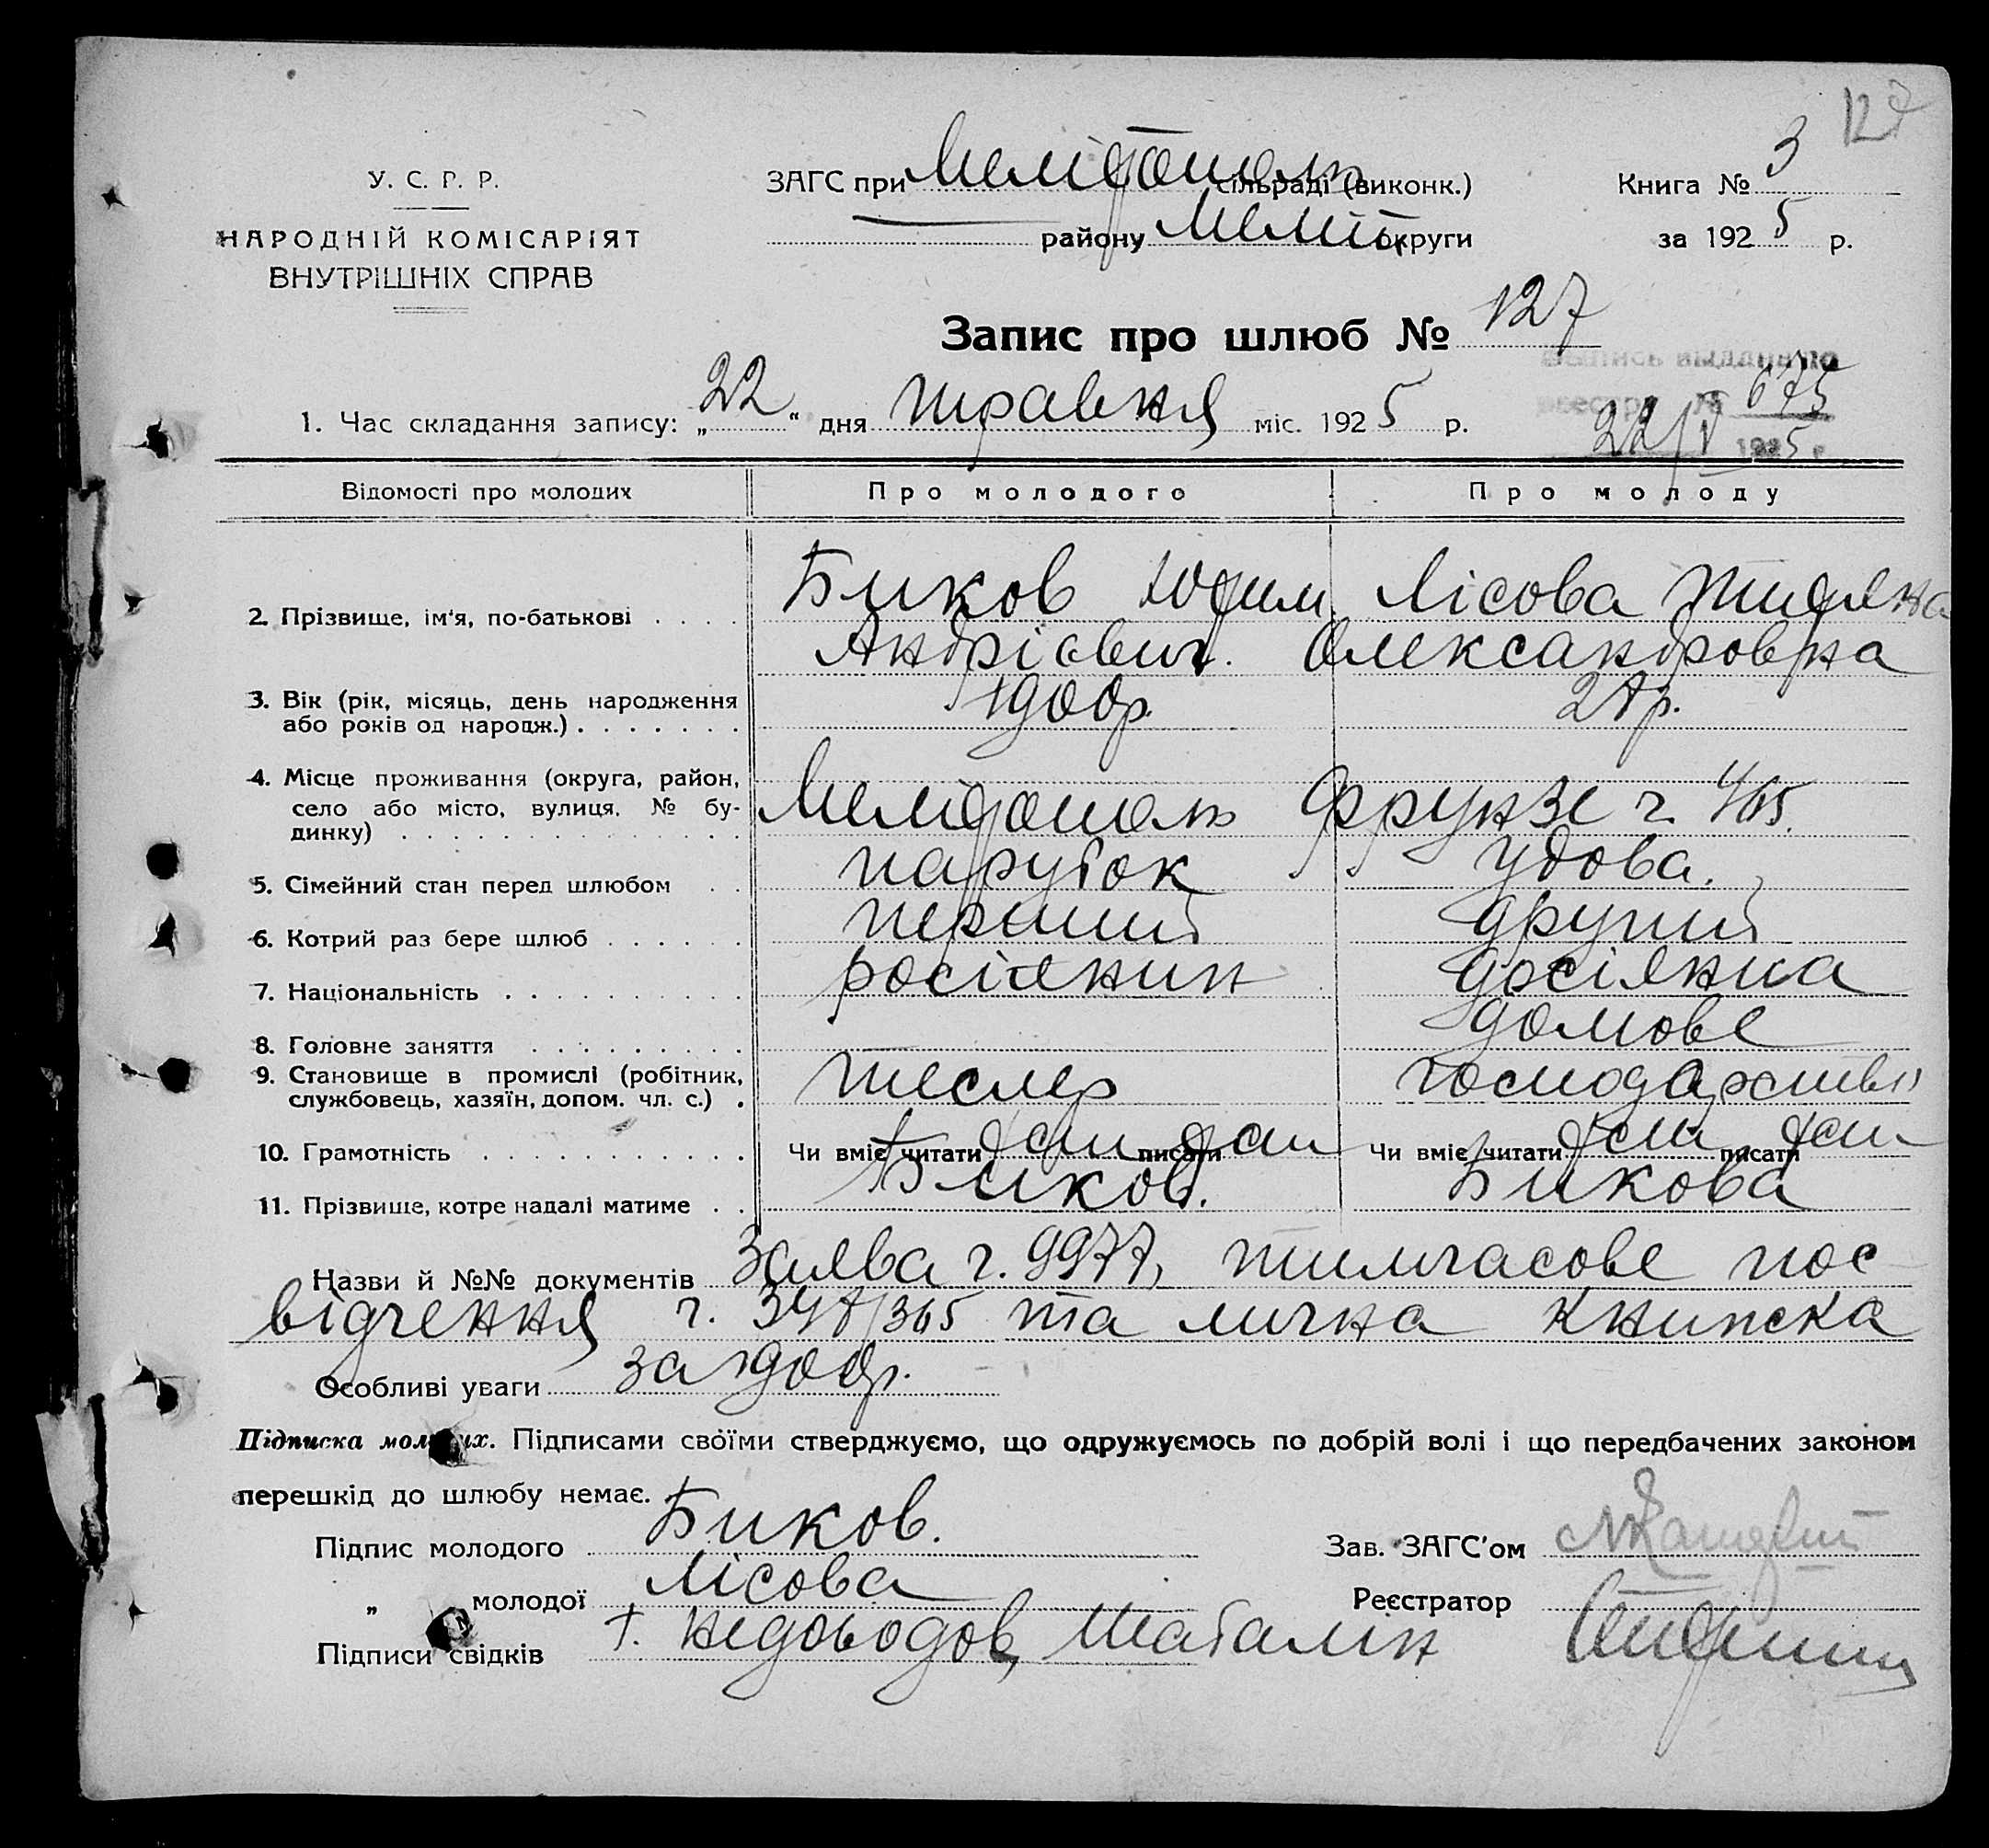 127
У. С. Р. Р.
НАРОДНІЙ КОМІСАРІЯТ
ВНУТРІШНІХ СПРАВ
ЗАГС при Мелітополь сільраді (виконк.)
району Меліт округи
Книга № 3
за 1925 р.
Запис про шлюб № 127
Выпись выдана по
реестру № 675
22/V 1925 г
1. Час складання запису: „22“ дня травня міс. 1925 р.
Відомості про молодих Про молодого Про молоду
2. Прізвище, ім'я, по-батькові Биков Юхим Лісова
Андрієвич. Олександровна
3. Вік (рік, місяць, день народження
або років од народж.) 1900р. р.
4. Місце проживання (округа, район,
село або місто, вулиця, № бу-
динку) Мелітополь Фрунзе ч.
5. Сімейний стан перед шлюбом парубок удова.
6. Котрий раз бере шлюб перший другий
7. Національність росіянин росіянка
8. Головне заняття домове
9. Становище в промислі (робітник,
службовець, хазяїн, допом. чл. с.) тесляр господарство
10. Грамотність Чи вміє читати так писати так Чи вміє читати так писати так
11. Прізвище, котре надалі матиме Биков. Бикова
Назви й №№ документів Заява ч. 9977, тимчасове пос
відчення ч. та лична книжка
Особливі уваги за
Підписка молодих. Підписами своїми стверджуємо, що одружуємось по добрій волі і що передбачених законом
перешкід до шлюбу немає.
Підпис молодого Биков.
„ молодої Лісова
Підписи свідків Шаталін
Зав. ЗАГС'ом
Реєстратор